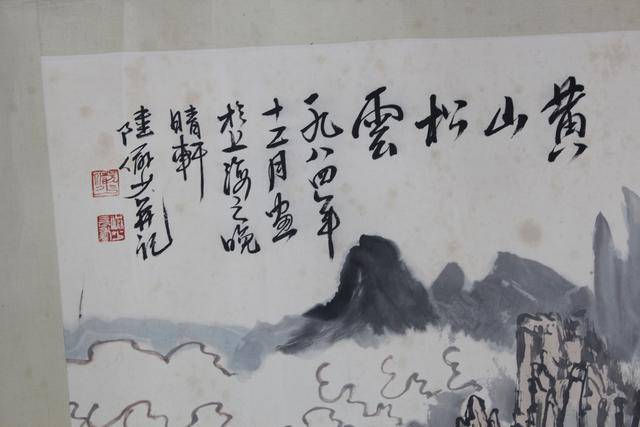 黄山松雲
一九八四年
十二月画
於上海之晚
晴軒
陸儼少并記